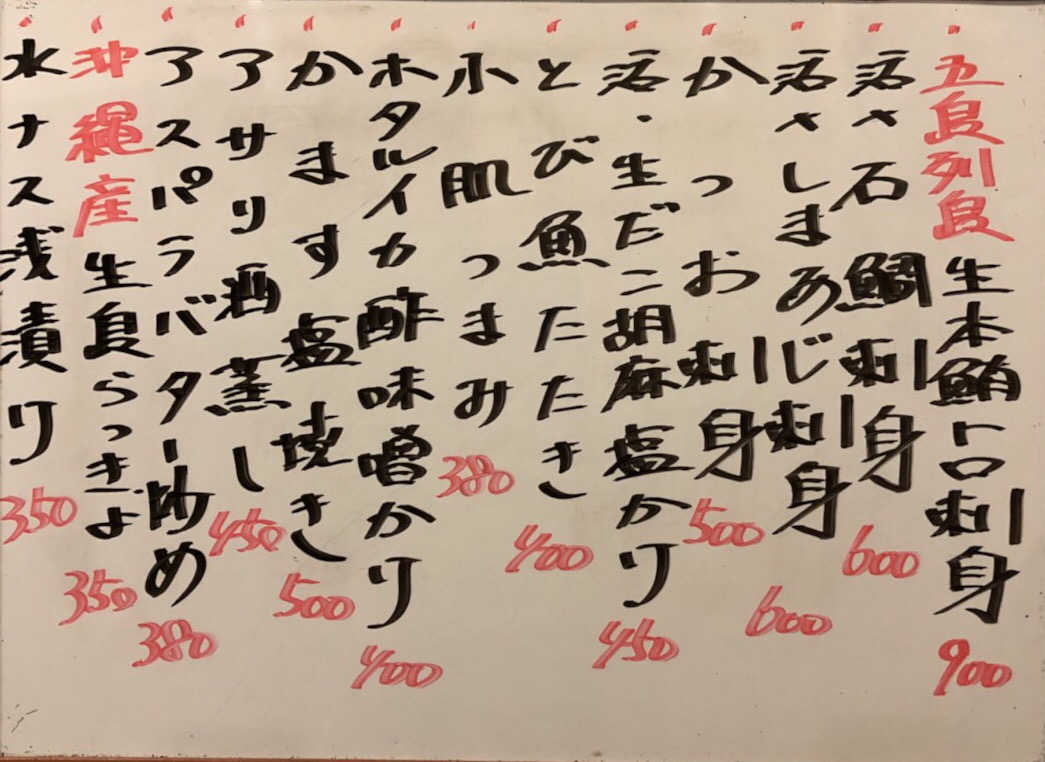 五島列島 生本鮪トロ刺身 900
活〆石鯛刺身 600
活〆しまあじ刺身 600
かつお刺身 500
活・生だこ胡麻塩かけ 450
とび魚たたき 400
小肌つまみ 380
ホタルイカ酢味噌かけ 400
かます塩焼き 500
アサリ酒蒸し 450
アスパラバター炒め 380
沖縄産生島らっきょ 350
水ナス浅漬け 350